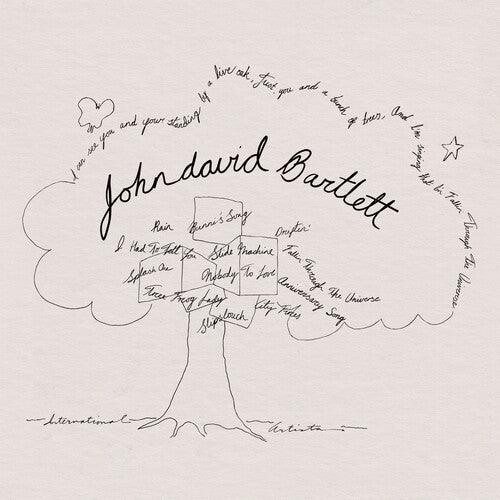 I can see you and your standing by a live oak, Just you and a bunch of trees, And I'm singing that be Fallin Through The Universe
John david Bartlett
Rain
Bunni's Song
Driftin'
I Had To Tell You
Slide Machine
Splash One
Nobody To Love
Fallin Through The Universe
Tree Frog Lady
Anniversary Song
Slipslouch
City Pines
International Artists